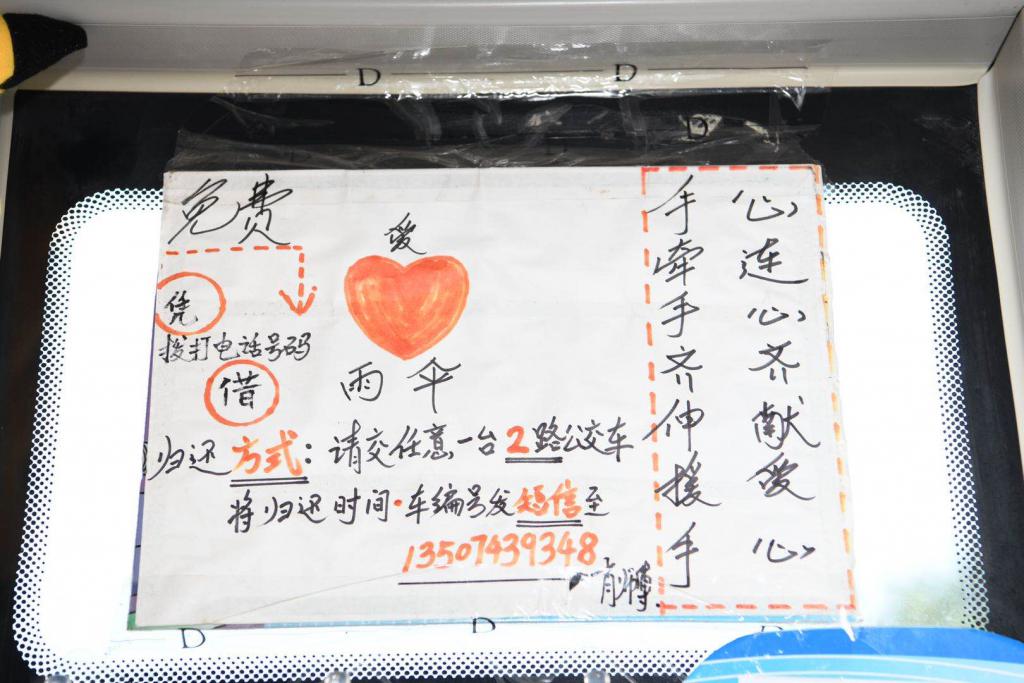 免费
爱
凭
拨打电话号码
借
雨伞
归还方式：请交任意一台2路公交车
将归还时间·车编号发短信至
13507439348
心连心齐献爱心
手牵手齐伸援手
D D
D
D D D